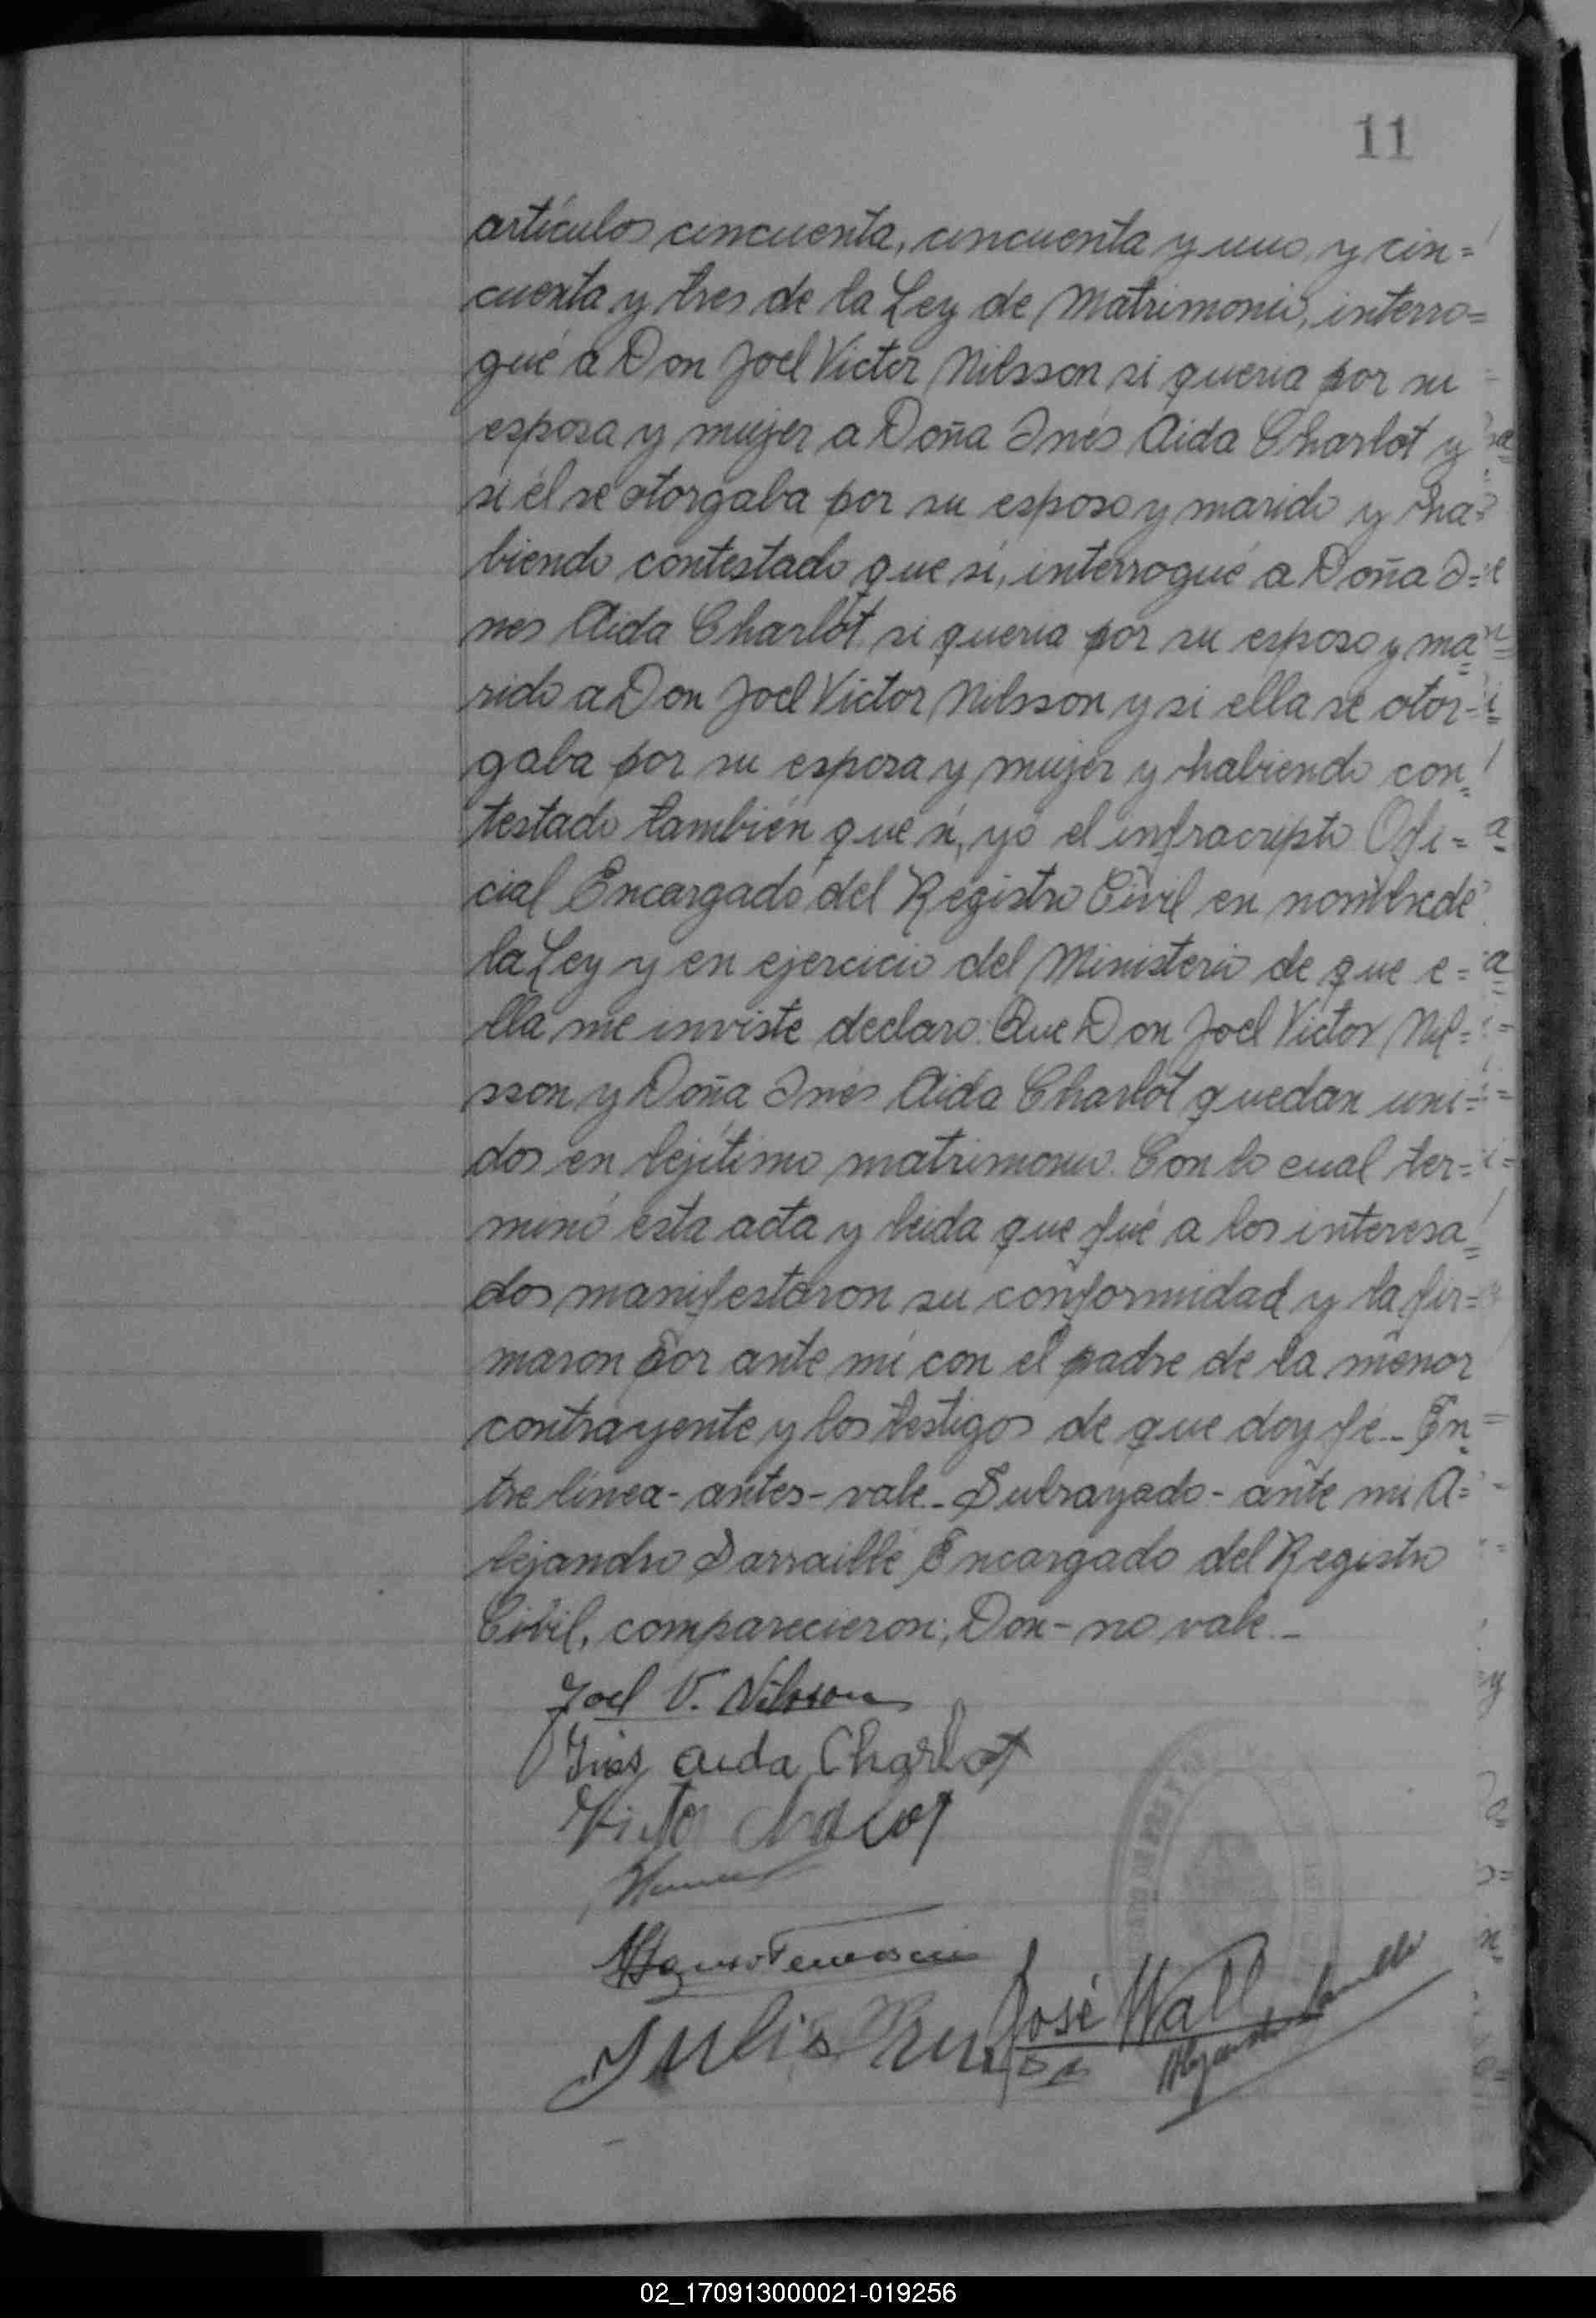 11
artículos cincuenta, cincuenta y uno, y cin=
cuenta y tres de la Ley de Matrimonio, interro=
gué a Don Joel Victor Nilsson si queria por su
esposa y mujer a Doña Inés Aida Charlot y
si él se otorgaba por su esposo y marido y ha=
biendo contestado que si, interrogué a Doña I=
nes Aida Charlot si queria por su esposo y ma=
rido a Don Joel Victor Nilsson y si ella se otor=
gaba por su esposa y mujer y habiendo con=
testado también que si, yo el infracripto Ofi=
cial Encargado del Registro Civil en nombre de
la Ley y en ejercicio del Ministerio de que e=
lla me inviste declaro: Que Don Joel Victor Nil=
sson y Doña Inés Aida Charlot quedan uni=
dos en lejítimo matrimonio. Con lo cual ter=
minó esta acta y leida que fué a los interesa=
dos manifestaron su conformidad y la fir=
maron por ante mi con el padre de la menor
contrayente y los testigos de que doy fé.- En
tre linea - antes - vale.- Subrayado - ante mi A=
lejandro Sarraillé Encargado del Registro
Civil, comparecieron; Don - no vale.-
Joel V. Nilsson
Inés aida Charlot
Victor Charlot
José Wall
Julio
02_170913000021-019256